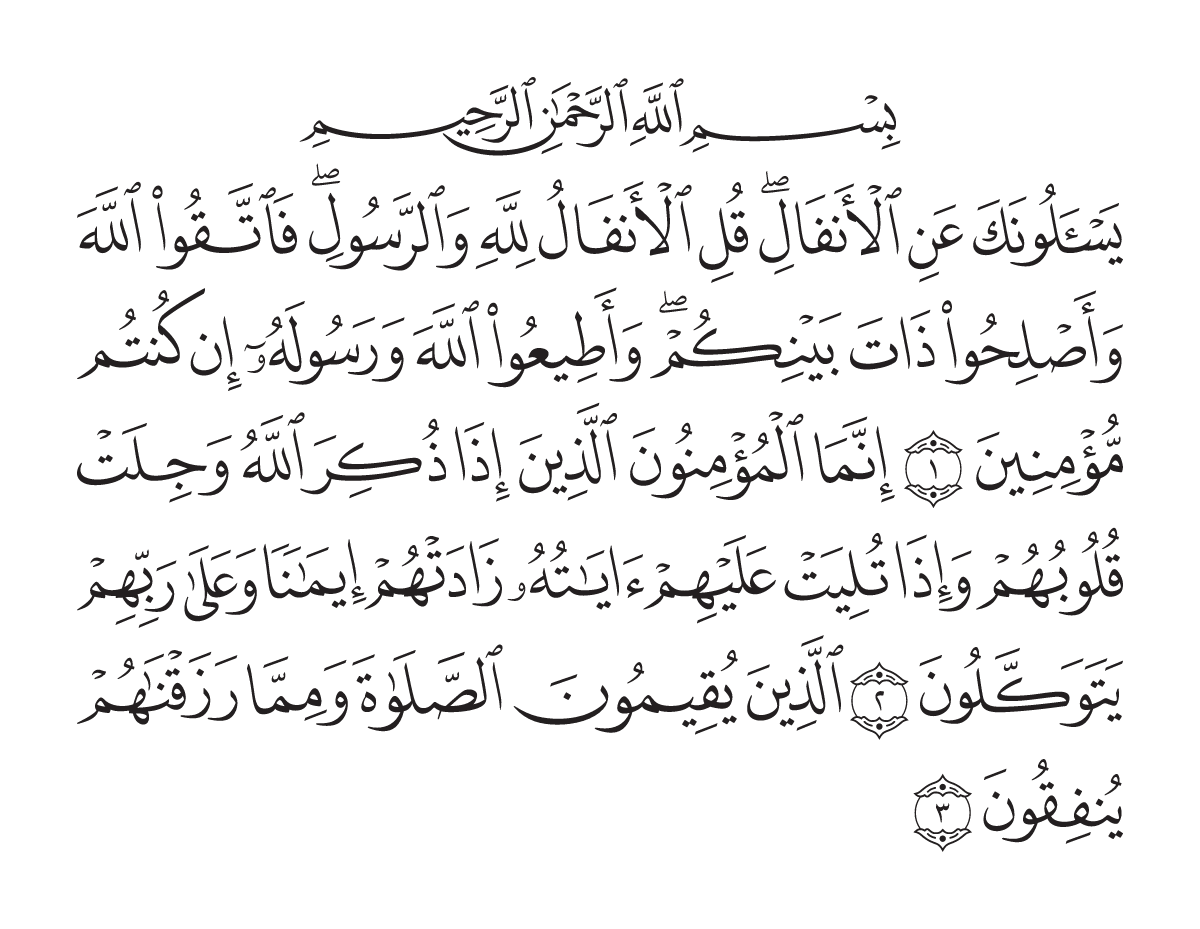 بِسْمِ ٱللَّهِ ٱلرَّحْمَٰنِ ٱلرَّحِيمِ
يَسْـَٔلُونَكَ عَنِ ٱلْأَنفَالِۖ قُلِ ٱلْأَنفَالُ لِلَّهِ وَٱلرَّسُولِۖ فَٱتَّقُوا۟ ٱللَّهَ
وَأَصْلِحُوا۟ ذَاتَ بَيْنِكُمْۖ وَأَطِيعُوا۟ ٱللَّهَ وَرَسُولَهُۥٓ إِن كُنتُم
مُّؤْمِنِينَ ١ إِنَّمَا ٱلْمُؤْمِنُونَ ٱلَّذِينَ إِذَا ذُكِرَ ٱللَّهُ وَجِلَتْ
قُلُوبُهُمْ وَإِذَا تُلِيَتْ عَلَيْهِمْ ءَايَٰتُهُۥ زَادَتْهُمْ إِيمَٰنًا وَعَلَىٰ رَبِّهِمْ
يَتَوَكَّلُونَ ٢ ٱلَّذِينَ يُقِيمُونَ ٱلصَّلَوٰةَ وَمِمَّا رَزَقْنَٰهُمْ
يُنفِقُونَ ٣